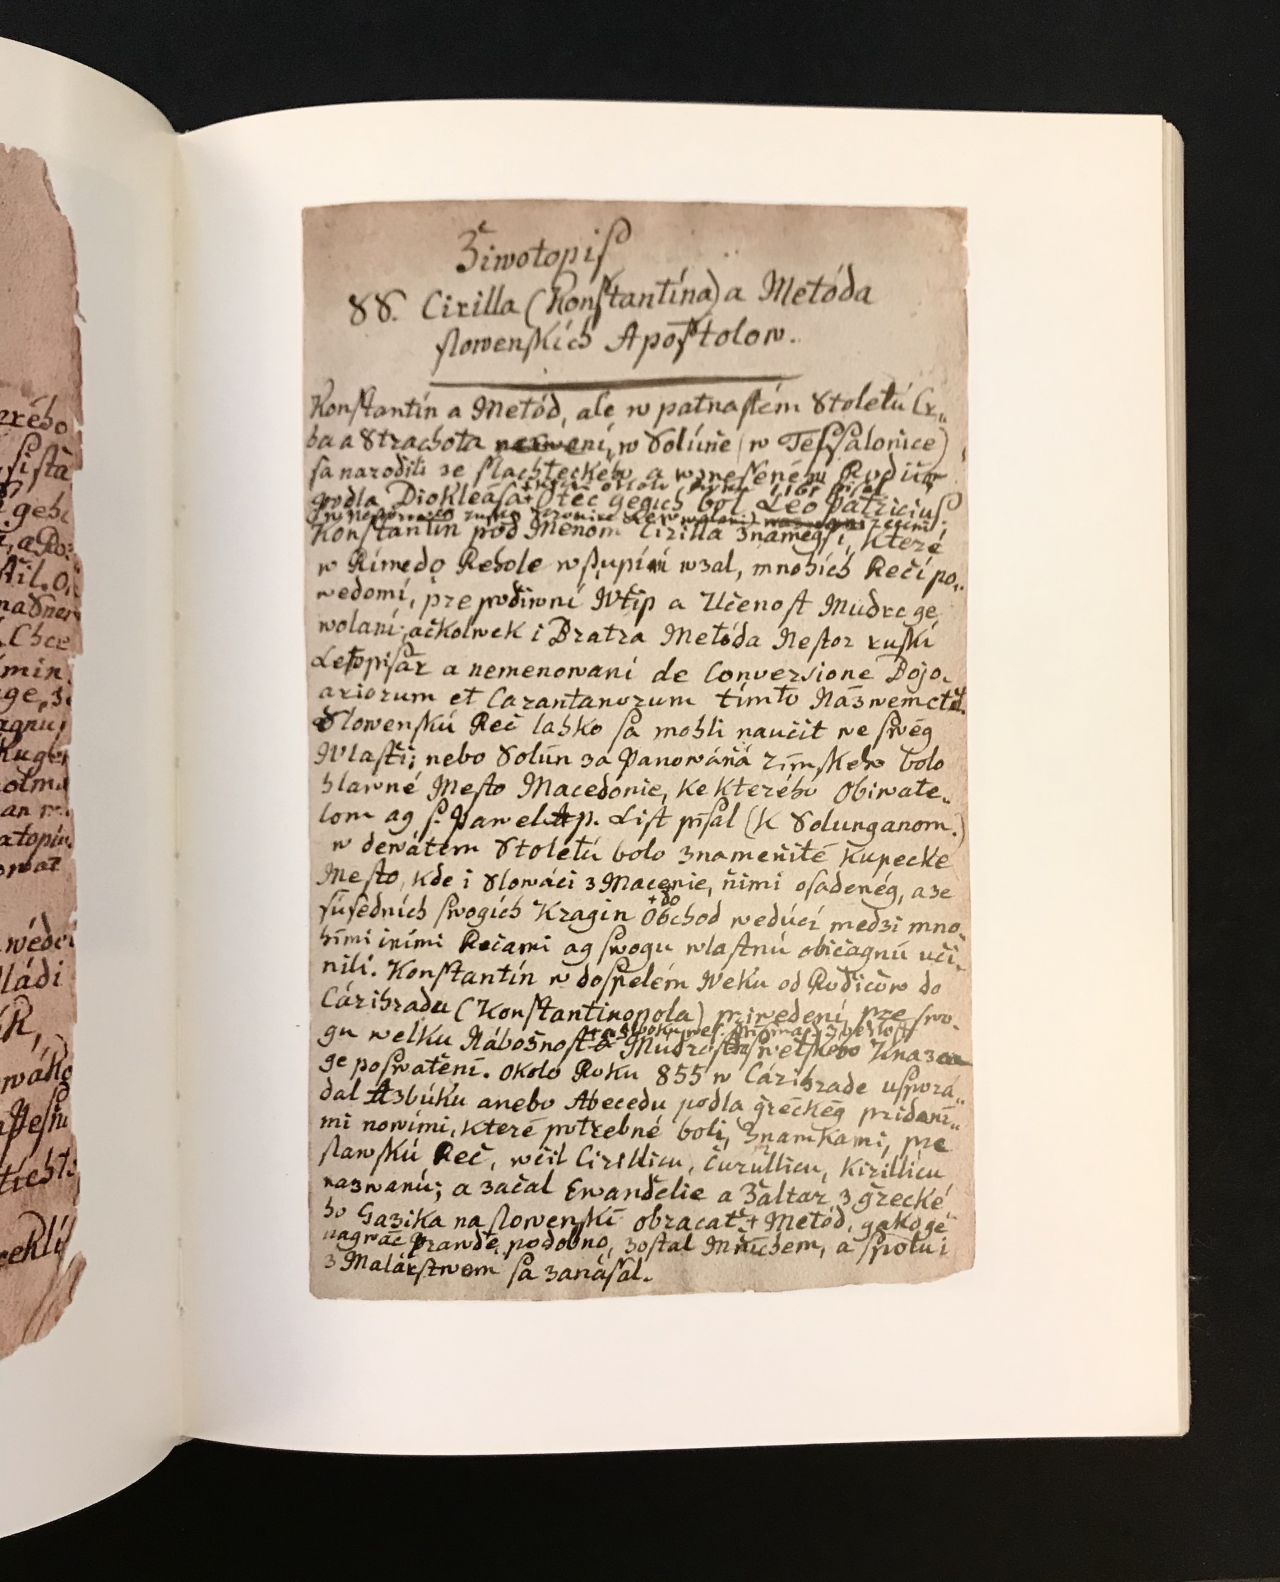 erého
sista
geho
a Po
Žil. O,
na Snem
Chce
min
ge, z
agnu
Kuge
olma
an w
atopiu
owat
wédei
ládi
wáko
Pesnu
trehto
reklí
Žiwotopis
SS. Cirilla (Konstantína) a Metóda
slowenskích Apoštolow.
Konstantín a Metód, ale w patnastém Stoletú Cr„
ha a Strachota nazwaní, w Solúňe (w Tessalonice)
sa narodili ze šlachteckého a wzneseného Rodičů
podla Diokleása Otec gegich bol Leo patricius
Konstantín pod Menom Cirilla známegsí, které
w Ríme do Rehole wstupiwi wzal, mnohích Rečí po„
wedomí, pre podiwní Wtip a Učenost Mudrc ge
wolaní; ačkolwek i Bratra Metóda Nestor ruskí
Letopisár a nemenowaní de Conversione Bojo„
ariorum et Carantanorum tímto Názwem ctil.
Slowenskú Reč lahko sa mohli naučit we swég
Wlasti; nebo Solún za Panowáňá rímskeho bolo
hlawné Mesto Macedonie, ke kterého Obiwate„
lom ag s. Pawel Ap. List písal (k Solunganom.)
w dewátém Stoletú bolo znamenité kupecké
Mesto, kde i Slowáci z Macenie, nimi osadenég, a ze
súsedních swogích Kragin Obchod wedúcí medzi mno„
+ do
hími iními Rečami ag swogu wlastnú običagnú uči„
nili. Konstantín w dospelém Weku od Rodičow do
Cárihradu (Konstantinopola) priwedení, pre swo„
gu welku Nábožnost a Múdrost swetského Knaza
ge poswatení. Okolo Roku 855 w Cárihrade usporá„
dal Azbúku anebo Abecedu podla gréckég pridaní„
mi nowími, které potrebné boli, Známkami, pre
slawskú Reč, wčil Cirillicu, Čurúllicu, Kirillicu
nazwanú; a začal Ewanďelie a Žaltar z grecké„
ho Gazika na slowenskí obracat. + Metód, gako ge
nagwác Prawďe podobno, zostal Mňíchem, a spolu i
z Malárstwem sa zanásal.